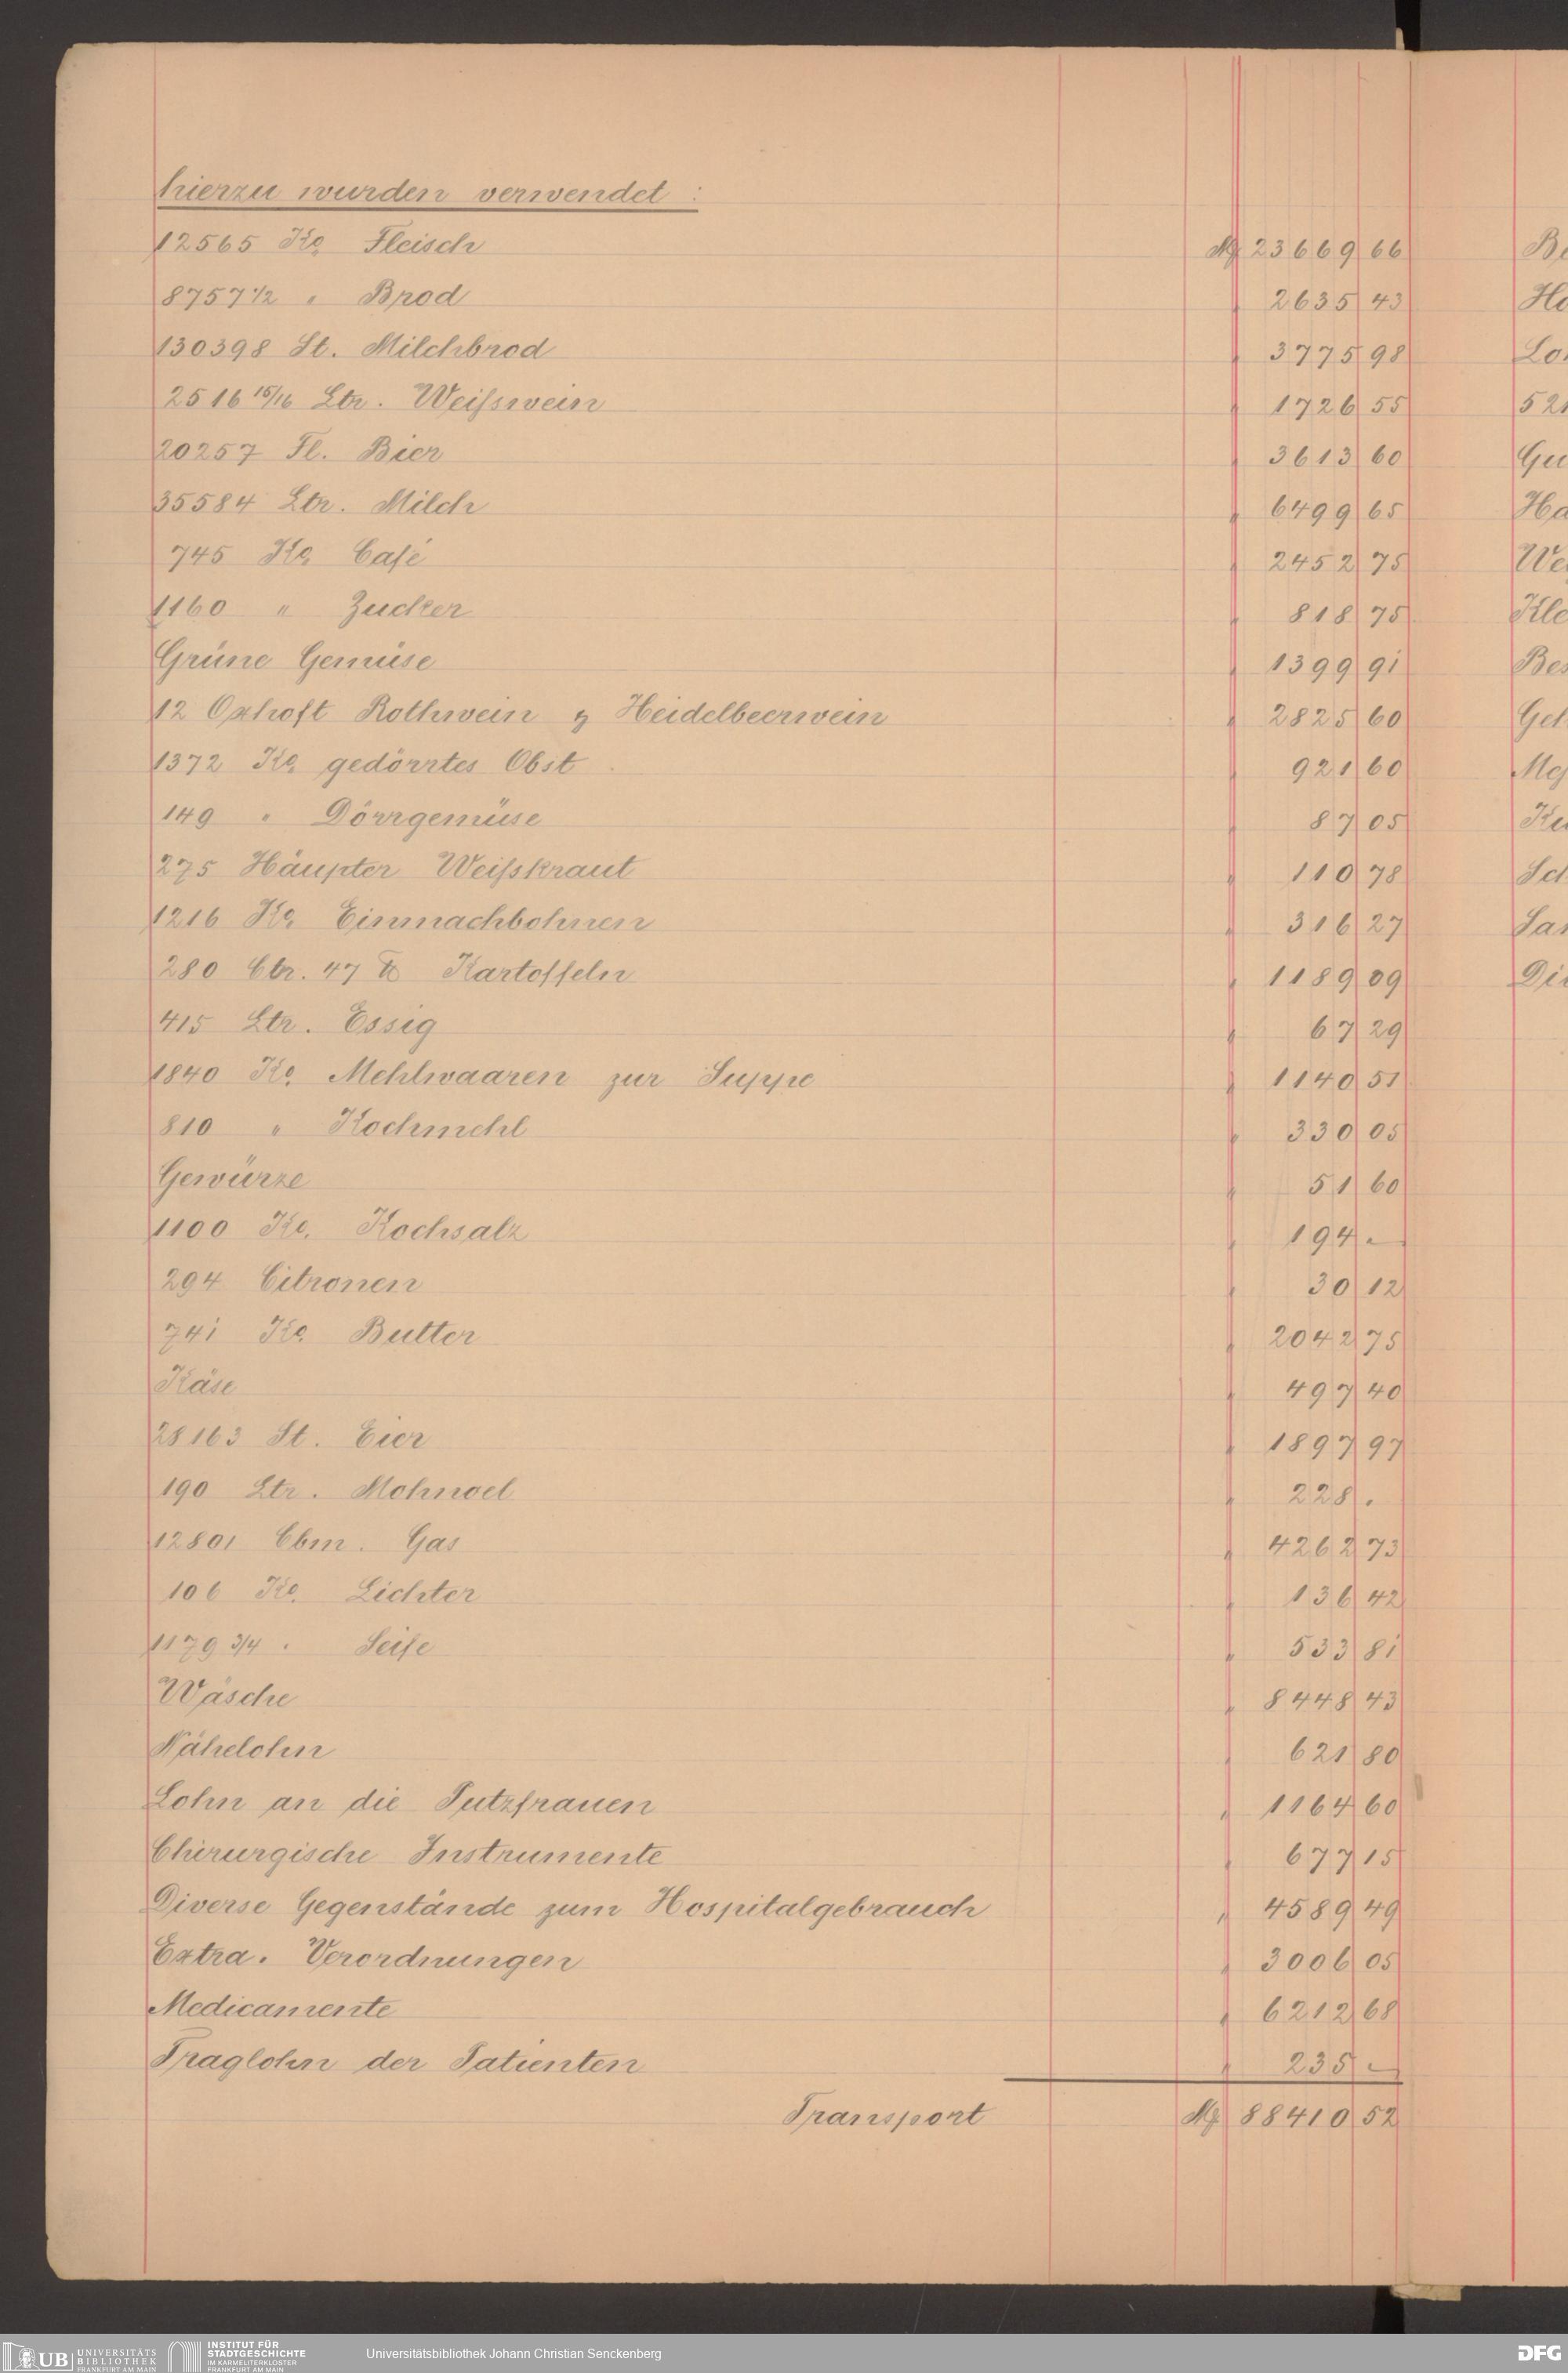 hierzu wurden verwendet :
12565 Ko Fleisch M 23669 66
8757 1/2 " Brod " 2635 43
130398 St. Milchbrod " 3775 98
2516 15/16 Ltr. Weifswein " 1726 55
20257 Fl. Bier " 3613 60
35584 Ltr. Milch " 6499 65
745 Ko Café " 2452 75
1160 " Zucker " 818 75
Grüne Gemüse " 1399 91
12 Oxhoft Rothwein & Heidelbeerwein " 2825 60
1372 Ko gedörrtes Obst " 921 60
149 " Dörrgemüse " 87 05
275 Häupter Weifskraut " 110 78
1216 Ko Einmachbohnen " 316 27
280 Ctr. 47 ℔ Kartoffeln " 1189 09
415 Ltr. Essig " 67 29
1840 Ko Mehlwaaren zur Suppe " 1140 51
810 " Kochmehl " 330 05
Gewürze " 51 60
1100 Ko. Kochsalz " 194 -
294 Citronen " 30 12
741 Ko Butter " 2042 75
Käse " 497 40
28163 St. Eier " 1897 97
190 Ltr. Mohnoel " 228 .
12801 Cbm. Gas " 4262 73
106 Ko. Lichter " 136 42
1179 3/4 " Seife " 533 81
Wäsche " 8448 43
Nähelohn " 621 80
Lohn an die Putzfrauen " 1164 60
Chirurgische Instrumente " 677 15
Diverse Gegenstände zum Hospitalgebrauch " 4589 49
Extra. Verordnungen " 3006 05
Medicamente " 6212 68
Traglohn der Patienten " 235 -
Transport M 88410 52
Be
Ha
52
Gu
Ha
We
Kle
Bes
Ku
Sch
UB UNIVERSITÄTS
BIBLIOTHEK
FRANKFURT AM MAIN
INSTITUT FÜR
STADTGESCHICHTE
IM KARMELITERKLOSTER
FRANKFURT AM MAIN
Universitätsbibliothek Johann Christian Senckenberg
DFG